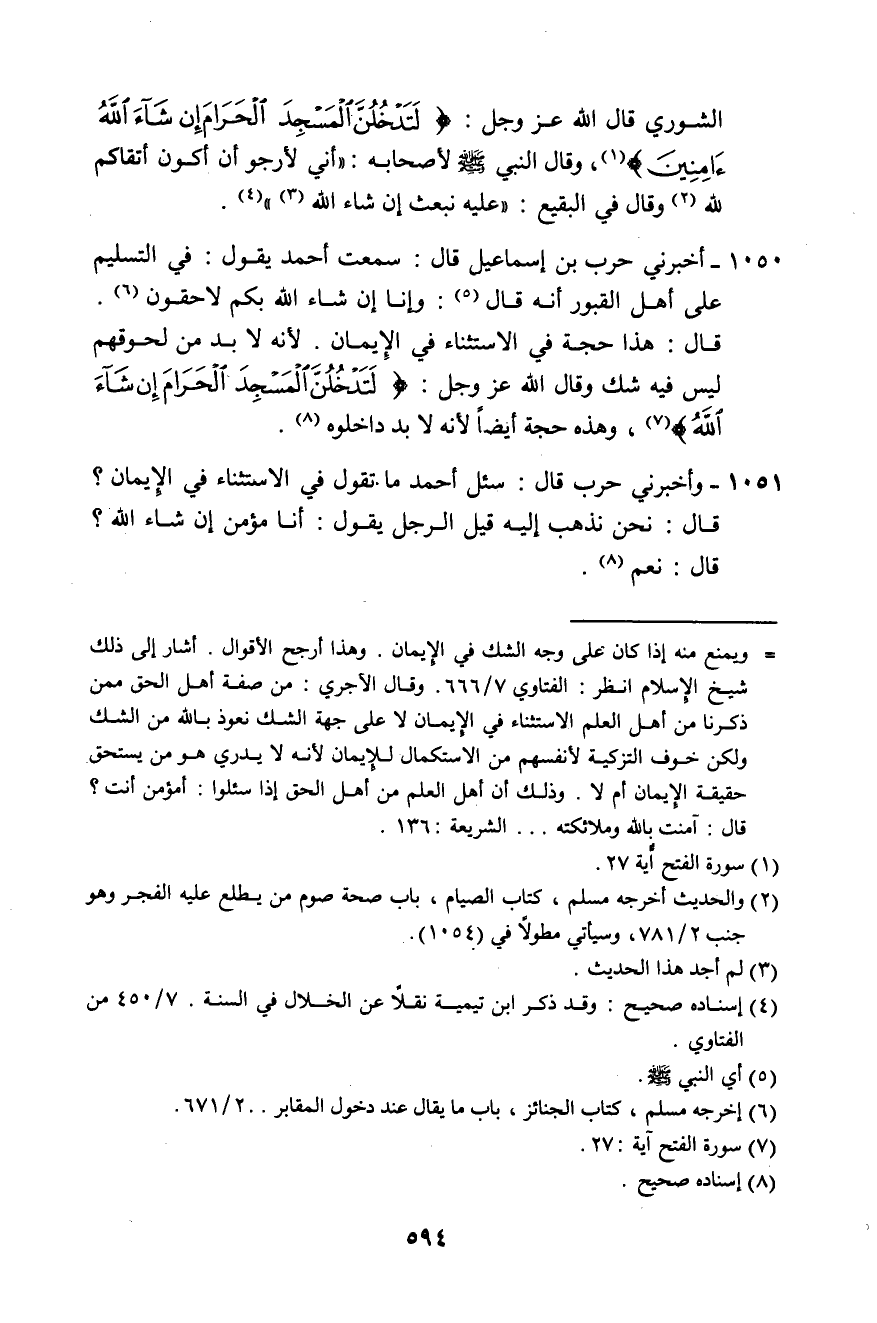 الشوري قال الله عز وجل : ﴿ لَتَدْخُلُنَّ الْمَسْجِدَ الْحَرَامَ إِن شَآءَ اللَّهُ
ءَامِنِينَ ﴾(١)، وقال النبي ﷺ لأصحابه : «أني لأرجو أن أكون أتقاكم
لله (٢) وقال في البقيع : «عليه نبعث إن شاء الله (٣) »(٤) .
١٠٥٠ - أخبرني حرب بن إسماعيل قال : سمعت أحمد يقول : في التسليم
على أهل القبور أنه قال (٥) : وإنا إن شاء الله بكم لاحقون (٦) .
قال : هذا حجة في الاستثناء في الإيمان . لأنه لا بد من لحوقهم
ليس فيه شك وقال الله عز وجل : ﴿ لَتَدْخُلُنَّ الْمَسْجِدَ الْحَرَامَ إِن شَآءَ
اللَّهُ ﴾(٧) ، وهذه حجة أيضاً لأنه لا بد داخلوه (٨) .
١٠٥١ - وأخبرني حرب قال : سئل أحمد ما تقول في الاستثناء في الإيمان ؟
قال : نحن نذهب إليه قيل الرجل يقول : أنا مؤمن إن شاء الله ؟
قال : نعم (٨) .
= ويمنع منه إذا كان على وجه الشك في الإيمان . وهذا أرجح الأقوال . أشار إلى ذلك
شيخ الإسلام انظر : الفتاوي ٦٦٦/٧. وقال الآجري : من صفة أهل الحق ممن
ذكرنا من أهل العلم الاستثناء في الإيمان لا على جهة الشك نعوذ بالله من الشك
ولكن خوف التزكية لأنفسهم من الاستكمال للإيمان لأنه لا يدري هو من يستحق
حقيقة الإيمان أم لا . وذلك أن أهل العلم من أهل الحق إذا سئلوا : أمؤمن أنت ؟
قال : آمنت بالله وملائكته ... الشريعة : ١٣٦ .
(١) سورة الفتح أية ٢٧ .
(٢) والحديث أخرجه مسلم ، كتاب الصيام ، باب صحة صوم من يطلع عليه الفجر وهو
جنب ٧٨١/٢، وسيأتي مطولاً في (١٠٥٤).
(٣) لم أجد هذا الحديث .
(٤) إسناده صحيح : وقد ذكر ابن تيمية نقلاً عن الخلال في السنة . ٤٥٠/٧ من
الفتاوي .
(٥) أي النبي ﷺ .
(٦) إخرجه مسلم ، كتاب الجنائز ، باب ما يقال عند دخول المقابر . . ٦٧١/٢.
(٧) سورة الفتح آية : ٢٧ .
(٨) إسناده صحيح .
٥٩٤